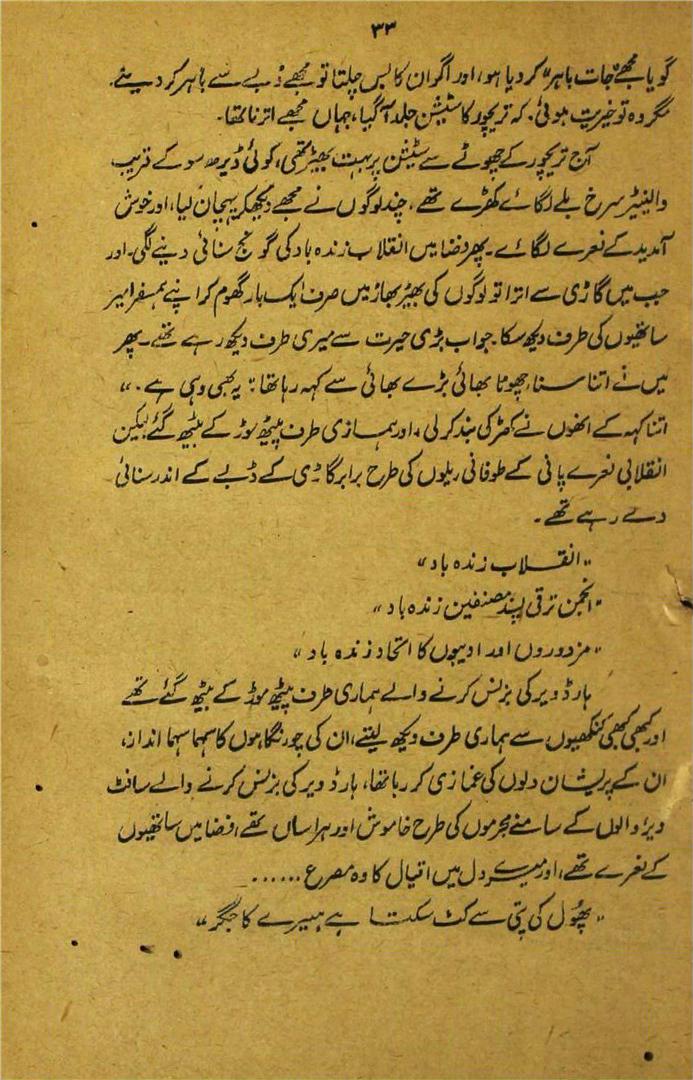 ۳۳
گویا مجھے ”جات باہر“ کر دیا ہو، اور اگر ان کا بس چلتا تو مجھے ڈبے سے باہر کر دیتے.
مگر وہ تو خیریت ہوئی. کہ تریچور کا سٹیشن جلد آ گیا، جہاں مجھے اترنا تھا۔
آج تریچور کے چھوٹے سے سٹیشن پر بہت بھیڑ تھی، کوئی ڈیڑھ سو کے قریب
والینٹیر سرخ بلے لگائے کھڑے تھے. چند لوگوں نے مجھے دیکھ کر پہچان لیا، اور خوش
آمدید کے نعرے لگائے۔ پھر فضا میں انقلاب زندہ باد کی گونج سنائی دینے لگی۔ اور
جب میں گاڑی سے اترا تو لوگوں کی بھیڑ بھاڑ میں صرف ایک بار گھوم کر اپنے ہمسفر امیر
ساتھیوں کی طرف دیکھ سکا. جو اب بڑی حیرت سے میری طرف دیکھ رہے تھے۔ پھر
میں نے اتنا سنا، چھوٹا بھائی بڑے بھائی سے کہہ رہا تھا: ”یہ بھی وہی ہے.“
اتنا کہہ کے انھوں نے کھڑکی بند کر لی، اور ہماری طرف پیٹھ موڑ کے بیٹھ گئے لیکن
انقلابی نعرے پانی کے طوفانی ریلوں کی طرح برابر گاڑی کے ڈبے کے اندر سنائی
دے رہے تھے۔
”انقلاب زندہ باد“
”انجمن ترقی پسند مصنفین زندہ باد“
”مزدوروں اور ادیبوں کا اتحاد زندہ باد“
ہارڈ ویر کی بزنس کرنے والے ہماری طرف پیٹھ موڑ کے بیٹھ گئے تھے
اور کبھی کبھی کنکھیوں سے ہماری طرف دیکھ لیتے، ان کی چور نگاہوں کا سہما سہما انداز،
ان کے پریشان دلوں کی غمازی کر رہا تھا، ہارڈ ویر کی بزنس کرنے والے سافٹ
ویر والوں کے سامنے مجرموں کی طرح خاموش اور ہراساں تھے، فضا میں ساتھیوں
کے نعرے تھے، اور میرے دل میں اقبال کا وہ مصرع ......
”پھول کی پتی سے کٹ سکتا ہے ہیرے کا جگر“